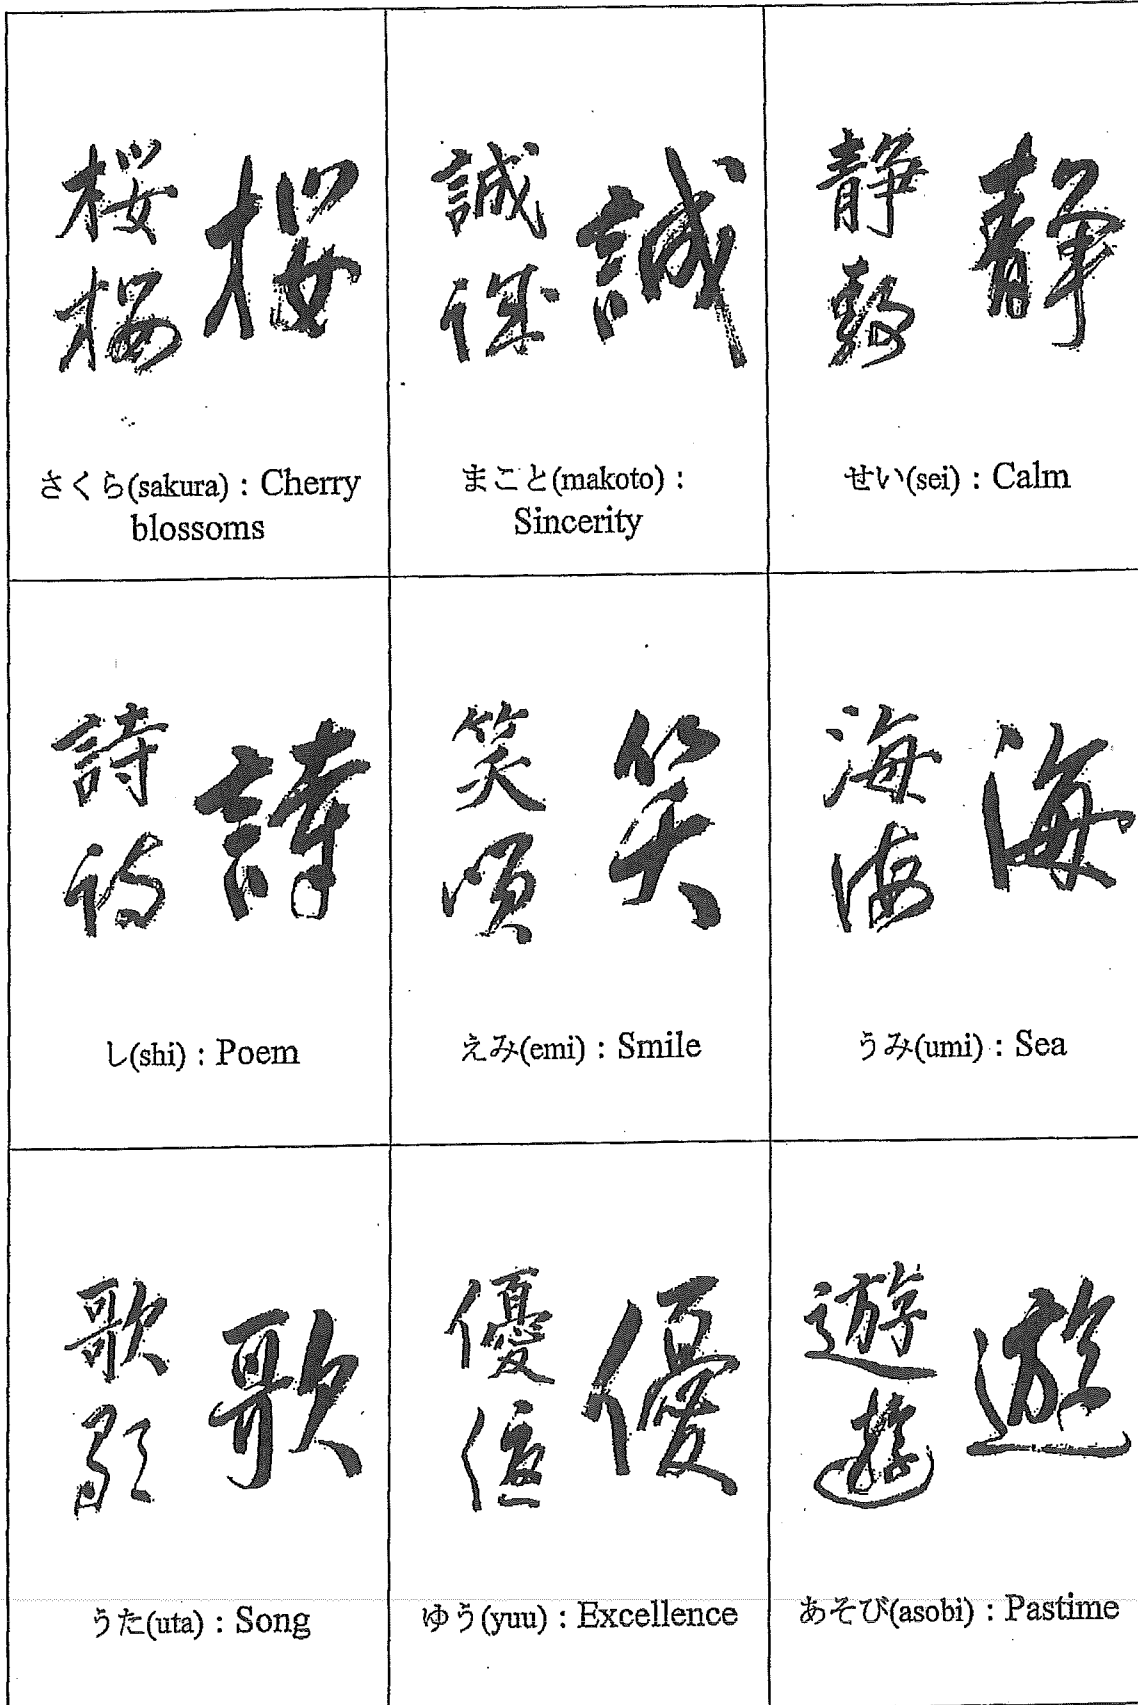 桜 桜
桜
さくら(sakura) : Cherry
blossoms
誠 誠
誠
まこと(makoto) :
Sincerity
静 静
静
せい(sei) : Calm
詩 詩
詩
し(shi) : Poem
笑 笑
えみ(emi) : Smile
海 海
海
うみ(umi) : Sea
歌 歌
歌
うた(uta) : Song
優 優
優
ゆう(yuu) : Excellence
遊 遊
遊
あそび(asobi) : Pastime